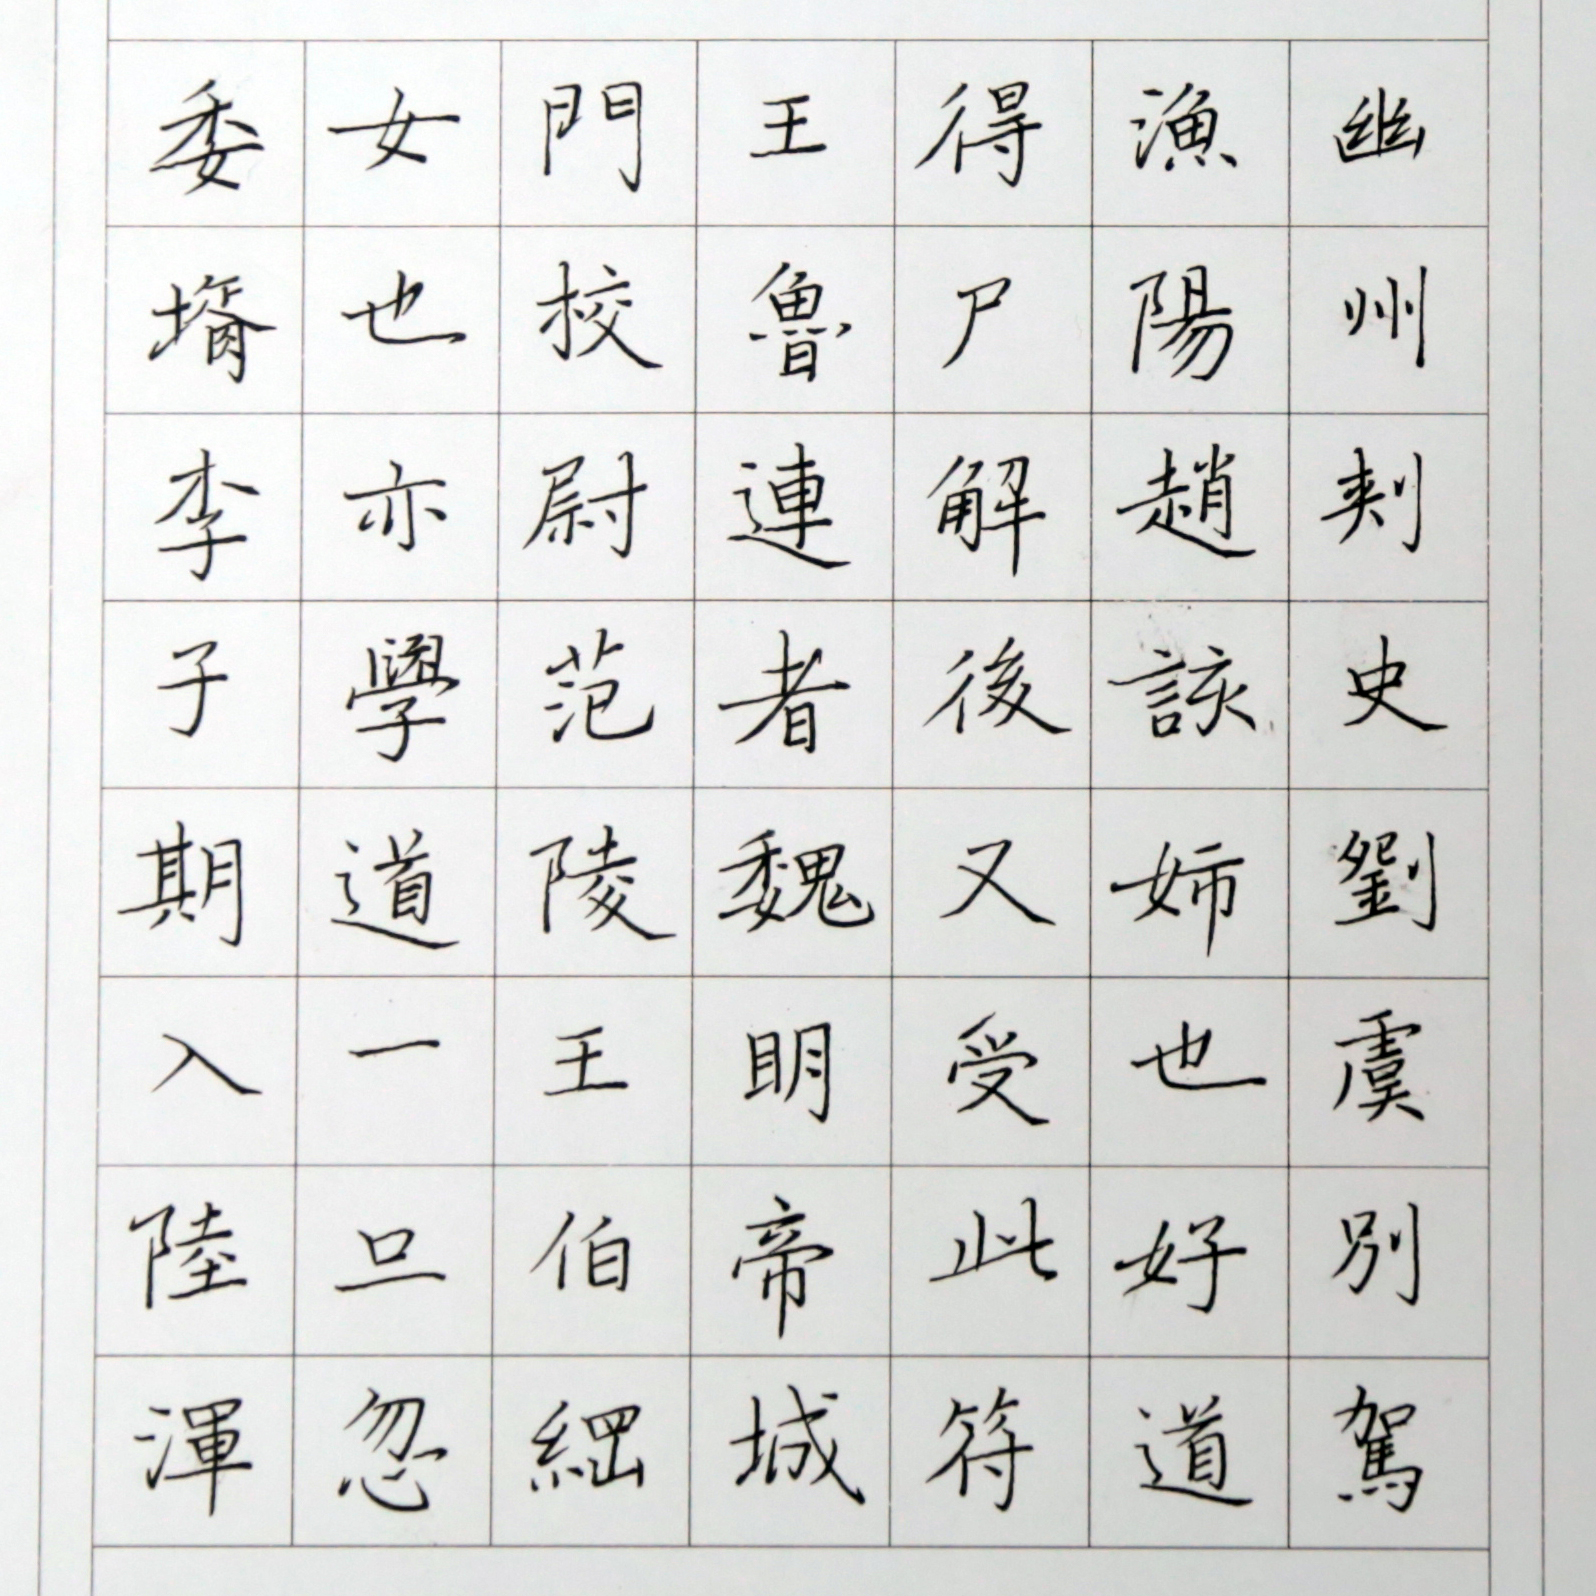 幽州刾史劉虞別駕
漁陽趙該姉也好道
得尸解後又受此符
王魯連者魏明帝城
門校尉范陵王伯綱
女也亦學道一旦忽
委壻李子期入陸渾